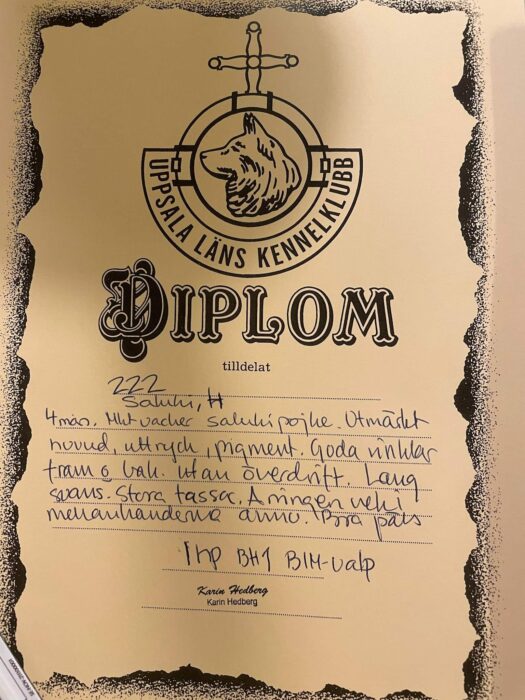 UPPSALA LÄNS KENNELKLUBB
DIPLOM
tilldelat
222
Saluki, H
4 mån. Mkt vacker salukipojke. Utmärkt
huvud, uttryck, pigment. Goda vinklar
fram o bak. utan överdrift. Lång
svans. Stora tassar.
mellanhänderna ännu. Bra päls
1 hp BH1 BIM-valp
Karin Hedberg
Karin Hedberg